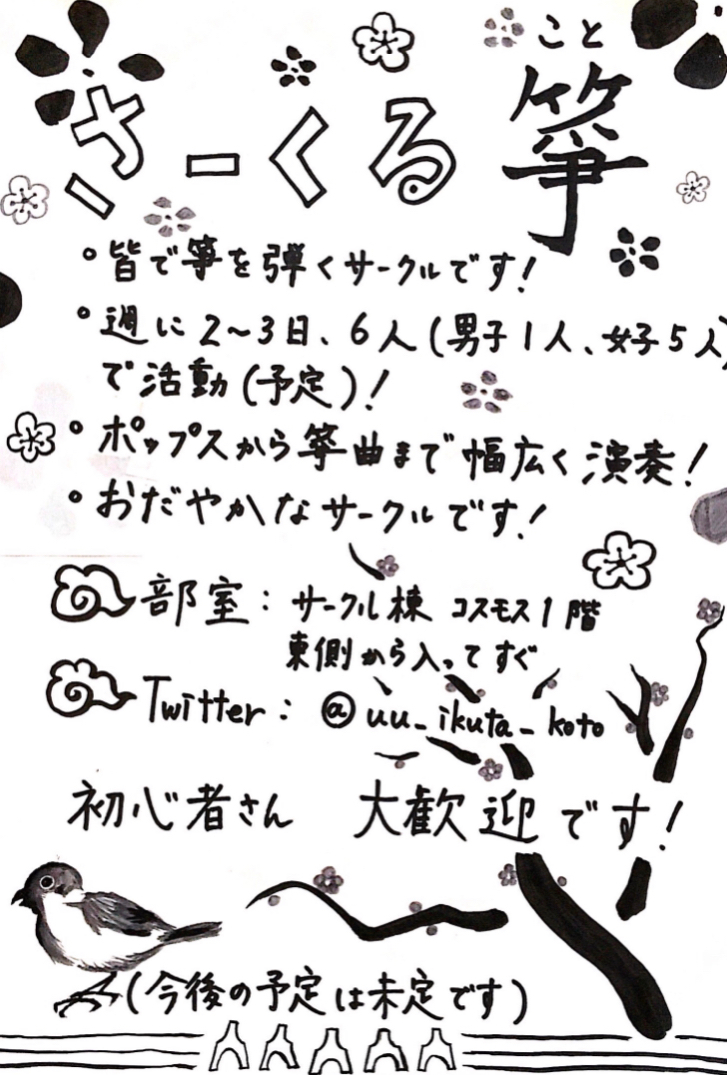 こと
さーくる 箏
・皆で箏を弾くサークルです!
・週に2〜3日、6人(男子1人、女子5人)
で活動(予定)!
・ポップスから箏曲まで幅広く演奏!
・おだやかなサークルです!
部室: サークル棟 コスモス1階
東側から入ってすぐ
Twitter: @uu_ikuta_koto
初心者さん 大歓迎です!
(今後の予定は未定です)